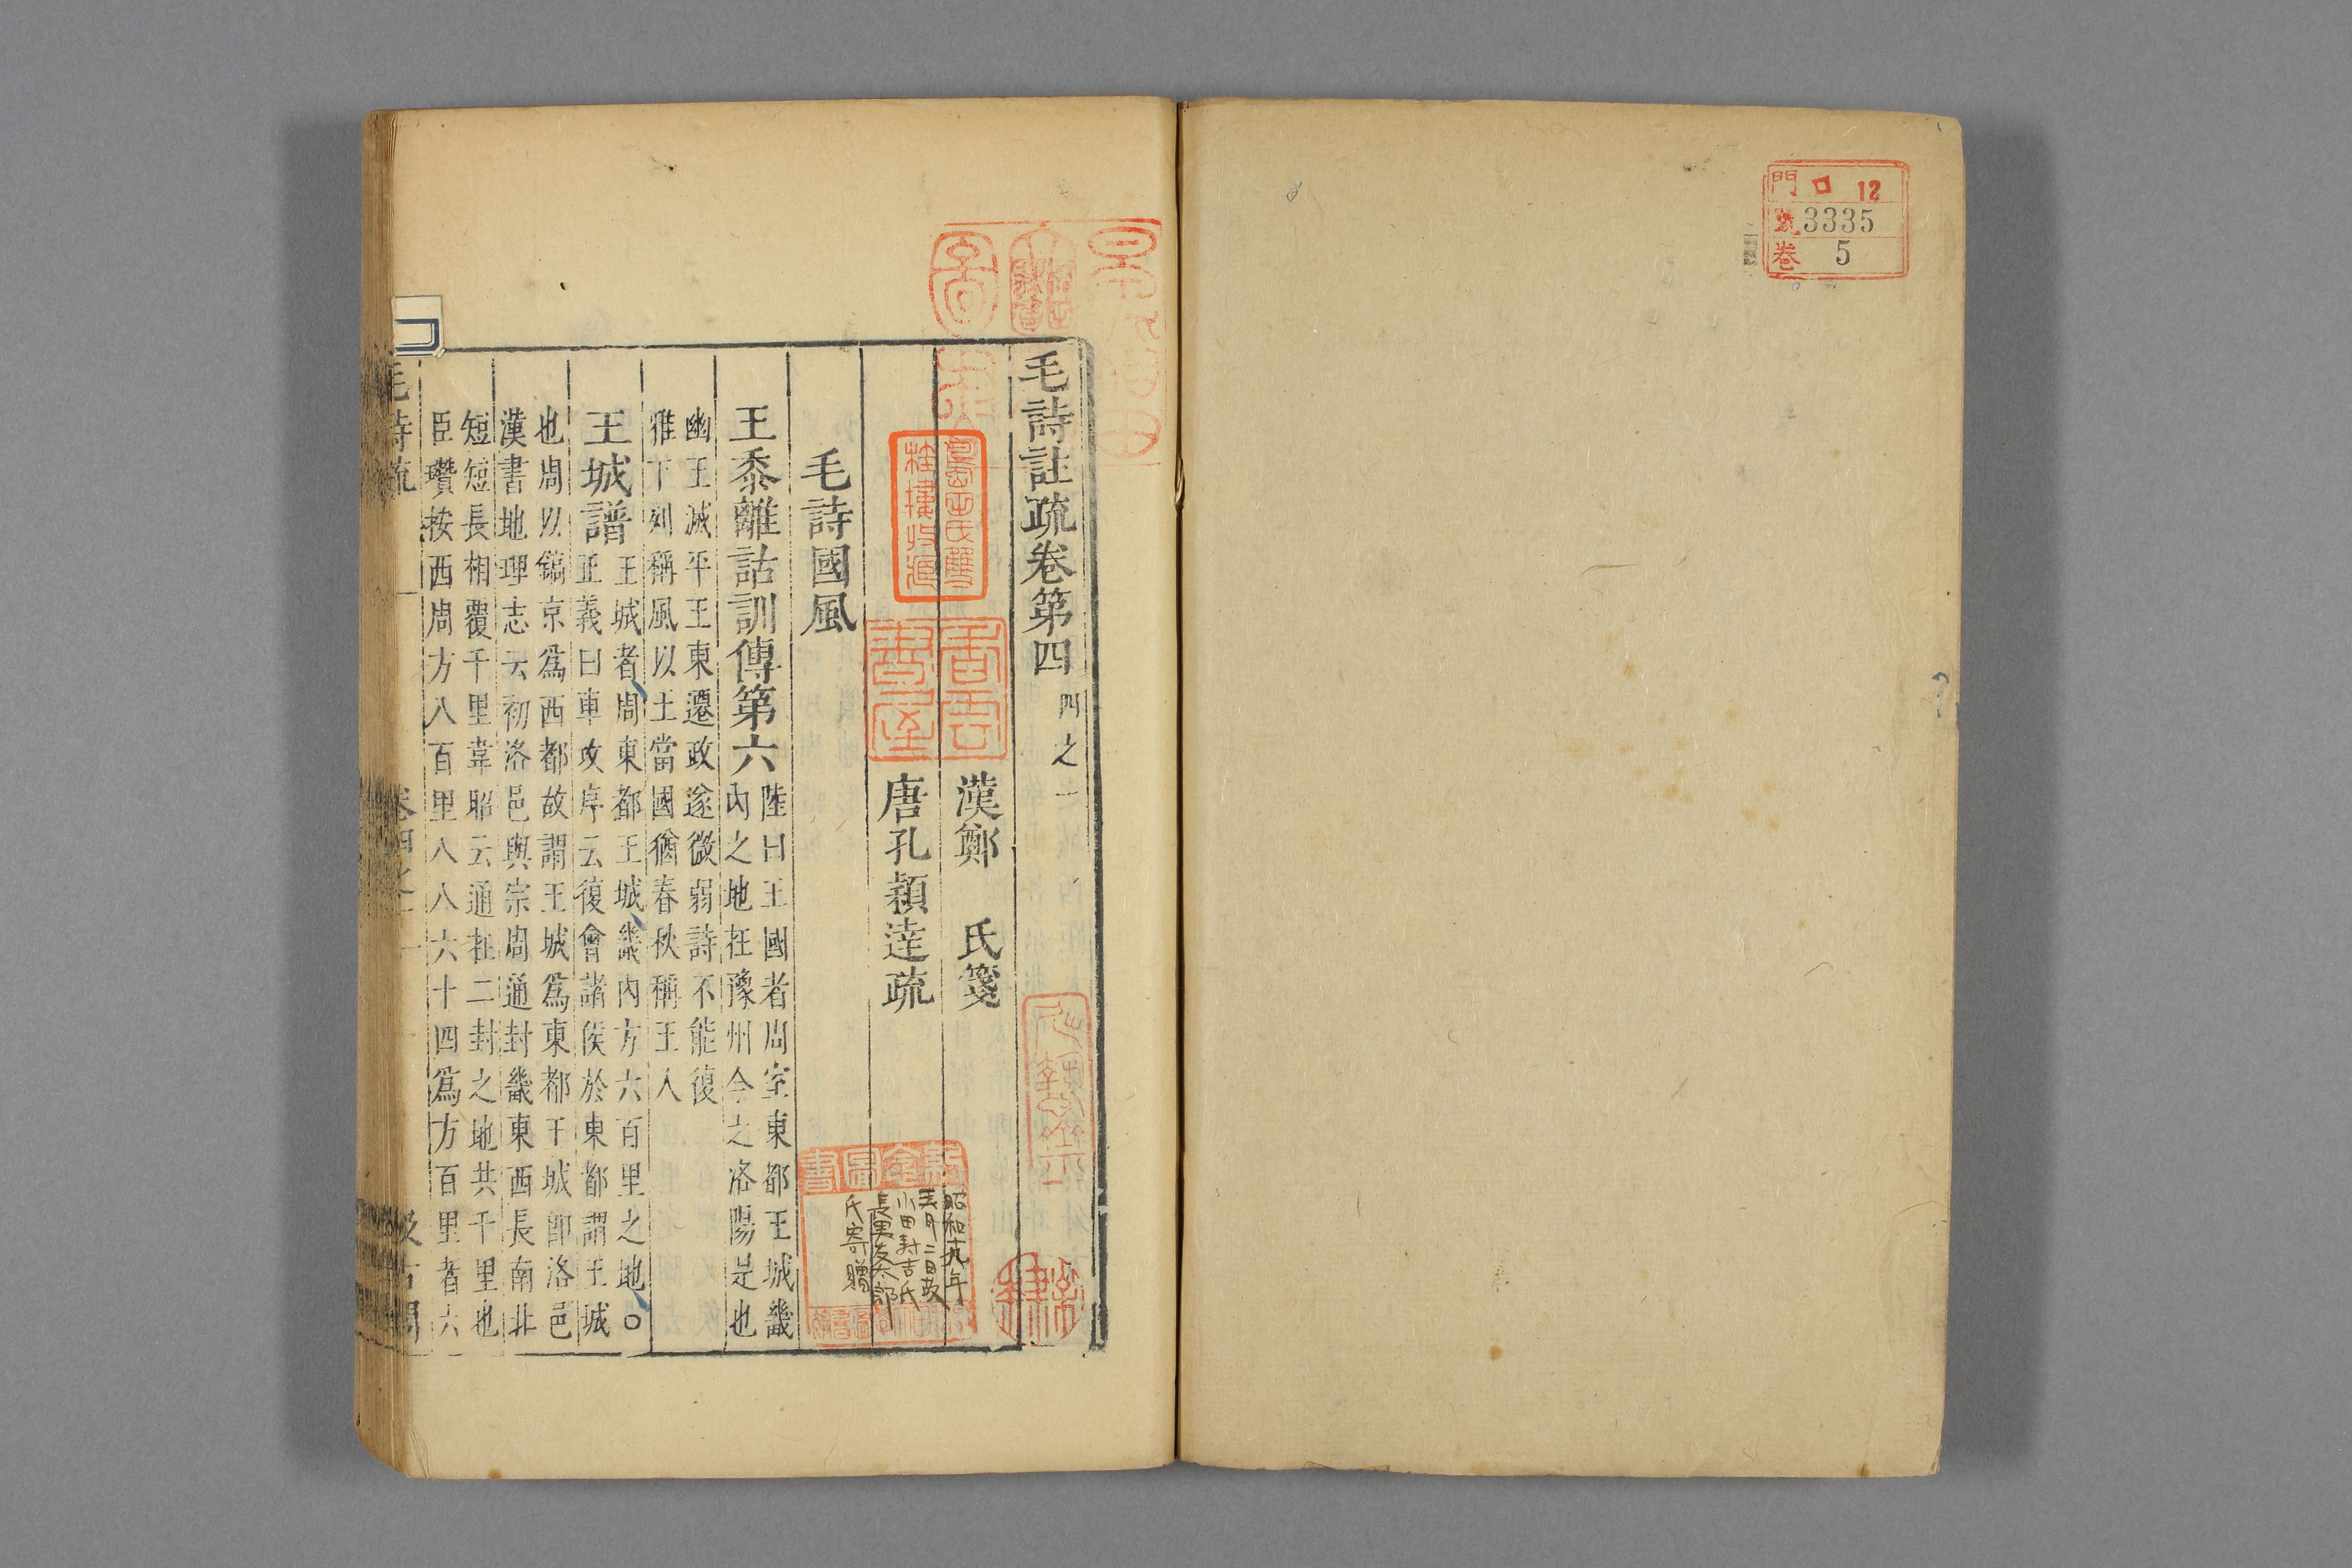 門 ロ 12
號 3335
卷 5
毛詩註疏卷第四 四之一
漢鄭 氏箋
唐孔穎達疏
毛詩國風
王黍離詁訓傳第六 陸曰王國者周室東都王城畿
內之地在豫州今之洛陽是也
幽王滅平王東遷政遂微弱詩不能復
雅下列稱風以王當國猶春秋稱王人
王城譜 王城者周東都王城畿內方六百里之地○
正義曰車攻序云復會諸侯於東都謂王城
也周以鎬京爲西都故謂王城爲東都王城即洛邑
漢書地理志云初洛邑與宗周通封畿東西長南北
短短長相覆千里韋昭云通在二封之地共千里也
臣瓚按西周方八百里八八六十四爲方百里者六
毛詩疏 卷四之一 一 汲古閣
圖書
昭和十九年
五月二日故
小田封吉氏
長男友太郎
氏寄贈